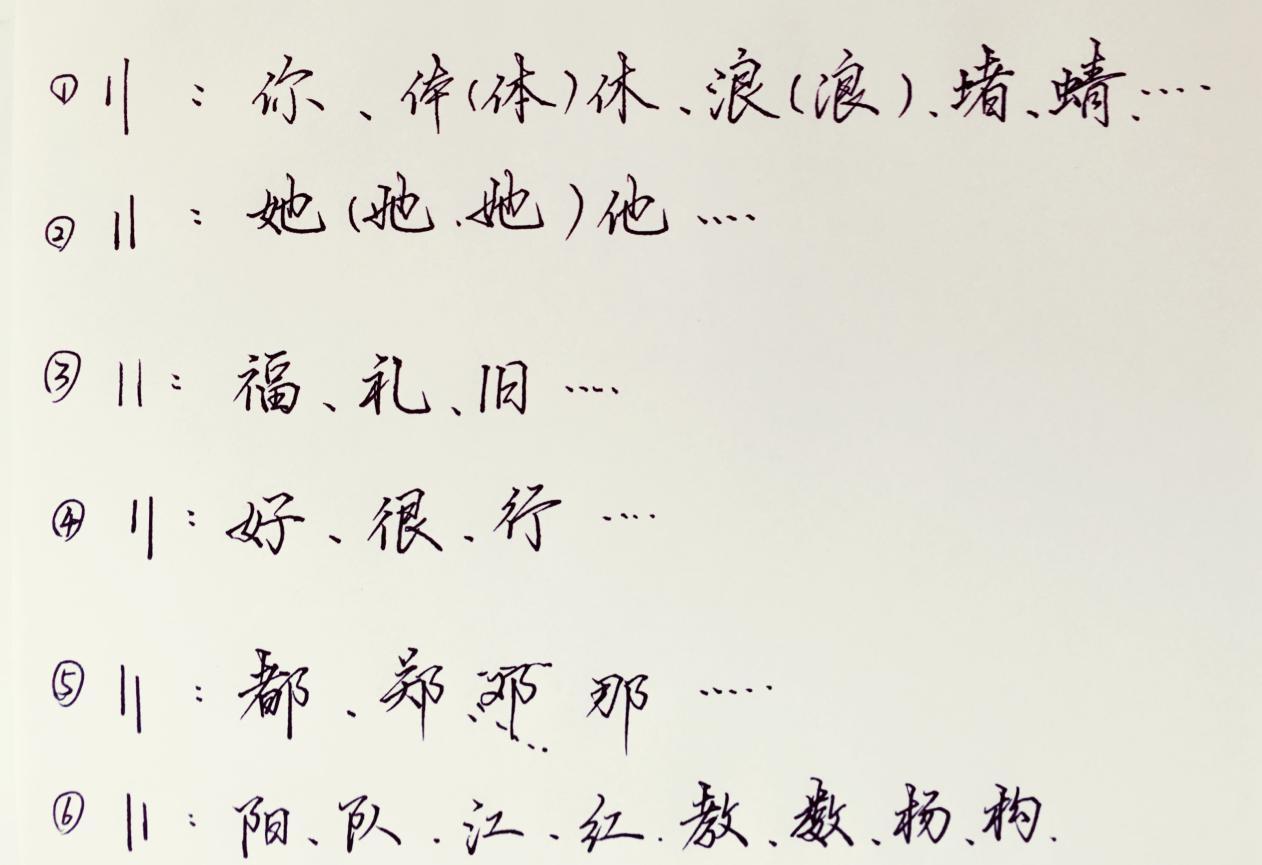 ① || : 你、体(体)休、浪(浪)、堵、蜻、……
② || : 她(她、她)他……
③ || : 福、礼、旧……
④ || : 好、很、行……
⑤ || : 都、郑、邓 那……
⑥ || : 阳、队、江、红、教、数、杨、构、